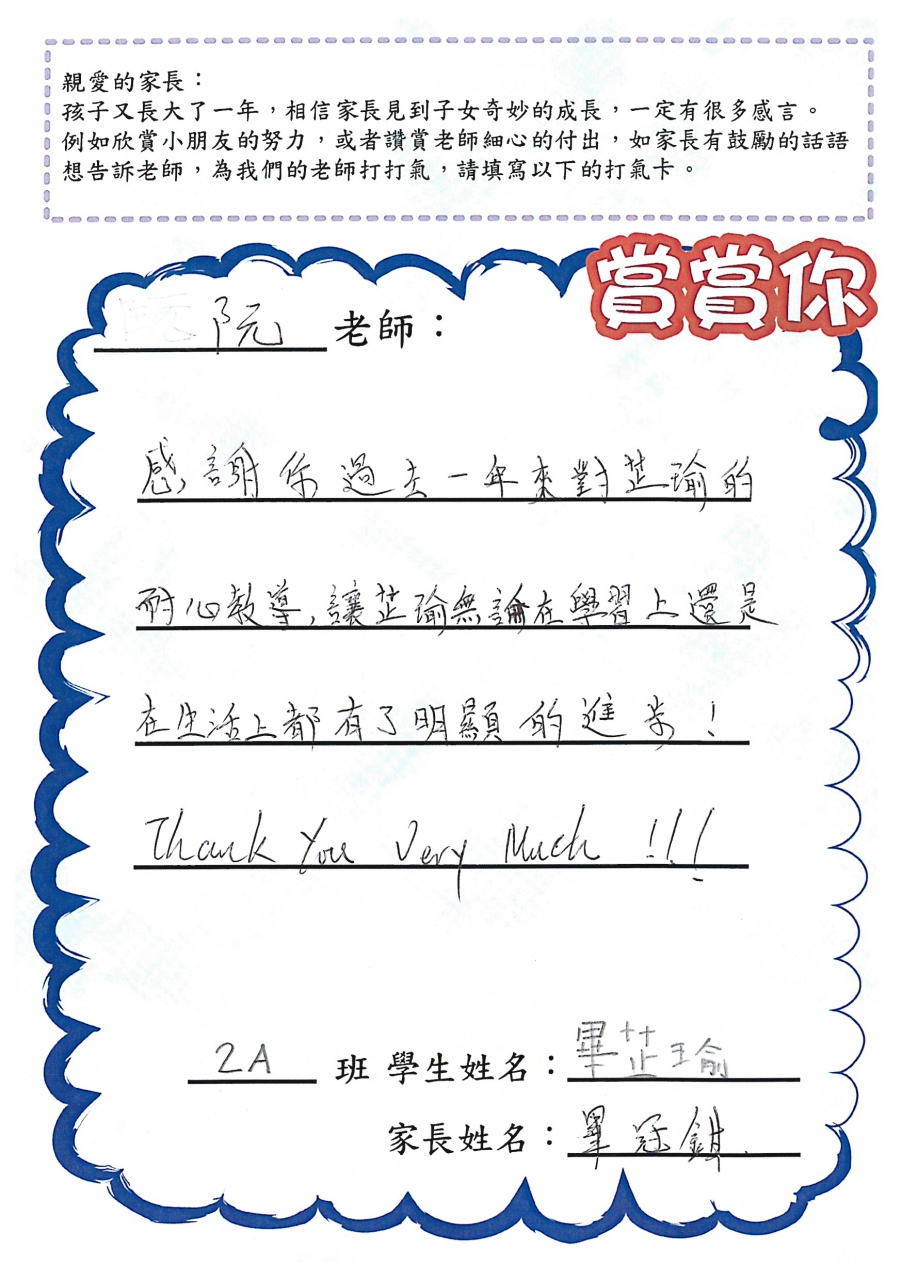 親愛的家長：
孩子又長大了一年，相信家長見到子女奇妙的成長，一定有很多感言。
例如欣賞小朋友的努力，或者讚賞老師細心的付出，如家長有鼓勵的話語
想告訴老師，為我們的老師打打氣，請填寫以下的打氣卡。
賞賞你
阮 老師：
感謝你過去一年來對芷瑜的
耐心教導，讓芷瑜無論在學習上還是
在生活上都有了明顯的進步！
Thank You Very Much !!!
2A 班 學生姓名：畢芷瑜
家長姓名：畢冠錤